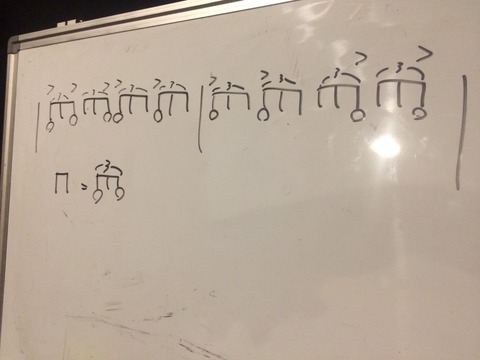 > 3 > 3 > > 3 > 3 > 3 > 3 3 > 3 >
= 3